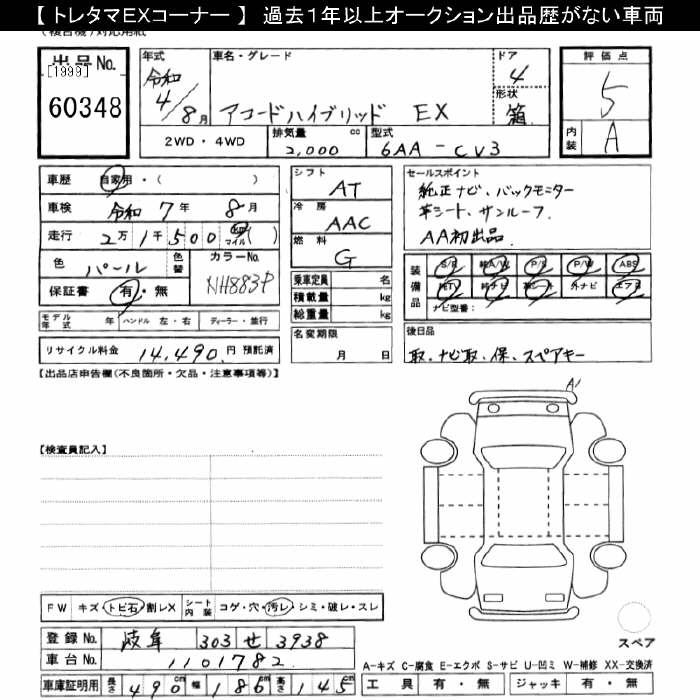 【 トレタマEXコーナー 】 過去1年以上オークション出品歴がない車両
出品No.
[1999]
60348
年式
令和
4/8月
車名・グレード
アコードハイブリッド EX
ドア
4
形状
箱
評価点
5
内装
A
2WD・4WD
排気量 cc
2,000
型式
6AA-CV3
車歴 自家用・( )
車検 令和 7年 8月
走行 2万 1千 500 km マイル ( )
色 パール 色替 カラーNo. NH883P
保証書 有・無
モデル年式 年 ハンドル 左・右 ディーラー・並行
リサイクル料金 14,490 円 預託済
シフト AT
冷房 AAC
燃料 G
乗車定員 名
積載量 kg
総重量 kg
名変期限
月 日
セールスポイント
純正ナビ、バックモニター
革シート、サンルーフ、
AA初出品。
装備品
S/R 純A/W P/S P/W ABS
純TV 純ナビ 革シート 外ナビ エアB
ナビ型番:
後日品
取、ナビ取、保、スペアキー
【出品店申告欄(不良箇所・欠品・注意事項等)】
A1
【検査員記入】
FW キズ・トビ石・割レX シート内装 コゲ・穴・汚レ・シミ・破レ・スレ
登録No. 岐阜 303 せ 3938
車台No. 1101782
車庫証明用 長さ 490 cm 幅 186 cm 高さ 145 cm
スペア
A-キズ C-腐食 E-エクボ S-サビ U-凹ミ W-補修 XX-交換済
工具 有・無 ジャッキ 有・無